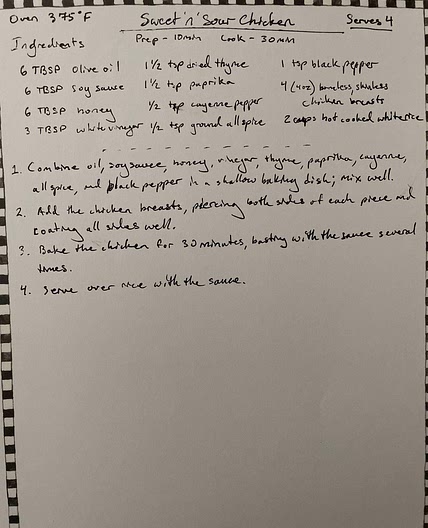 Oven 375°F Sweet 'n' Sour Chicken Serves 4
Prep - 10min Cook - 30min
Ingredients
6 TBSP olive oil 1 1/2 tsp dried thyme 1 tsp black pepper
6 TBSP soy sauce 1 1/2 tsp paprika 4 (4oz) boneless, skinless
chicken breasts
6 TBSP honey 1/2 tsp cayenne pepper
3 TBSP white vinegar 1/2 tsp ground allspice 2 cups hot cooked white rice
1. Combine oil, soy sauce, honey, vinegar, thyme, paprika, cayenne,
allspice, and black pepper in a shallow baking dish; mix well.
2. Add the chicken breasts, piercing both sides of each piece and
coating all sides well.
3. Bake the chicken for 30 minutes, basting with the sauce several
times.
4. Serve over rice with the sauce.